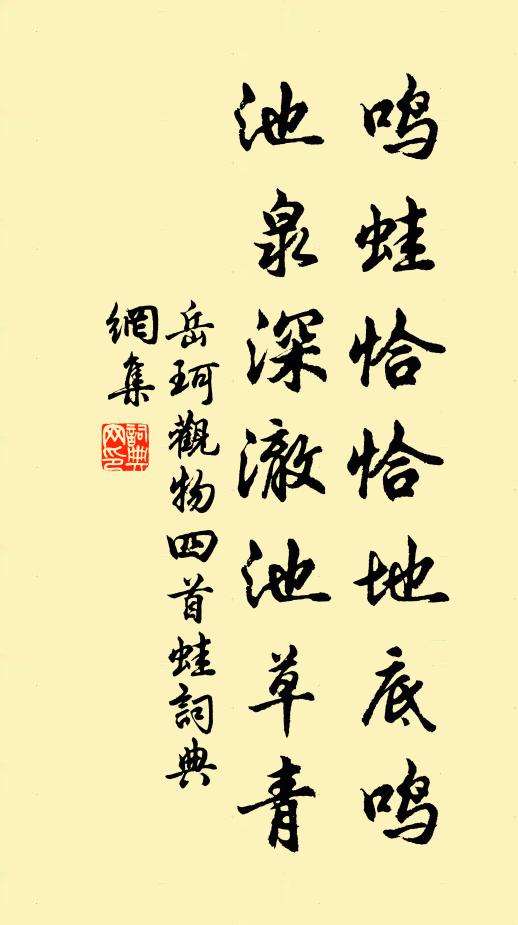 鸣蛙恰恰地底鸣
池泉深澈池草青
岳珂觀物四首蛙詞典
網集
詞典
网印